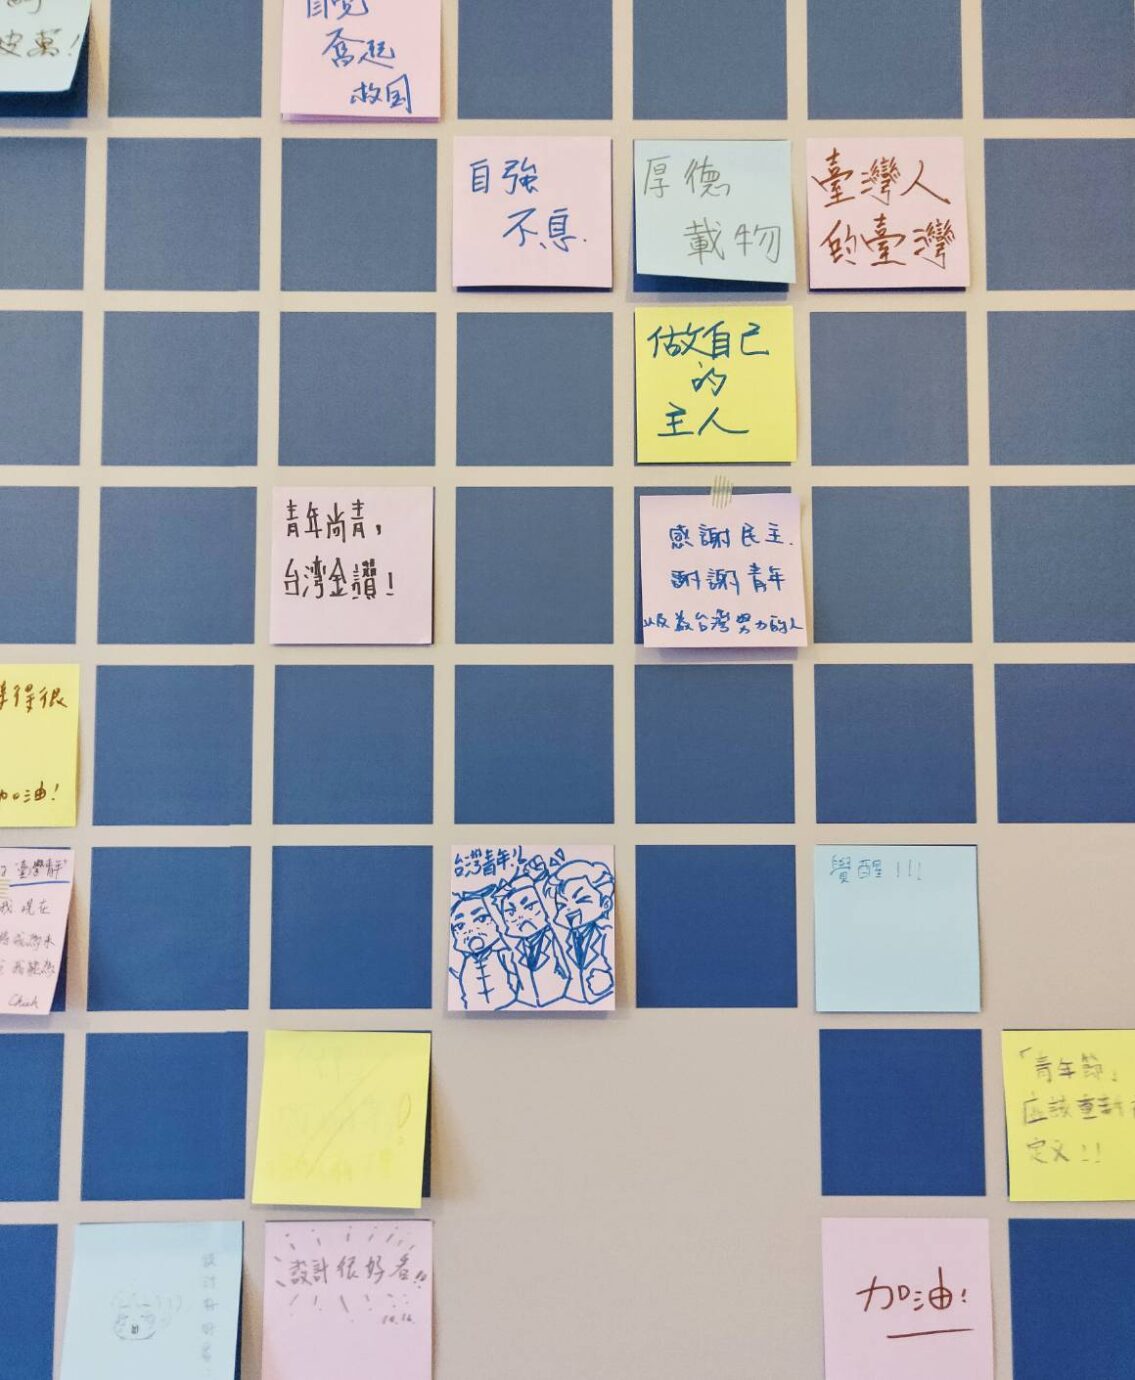 皮蛋!
自覺
奮起
救国
自強
不息.
厚德
載物
臺灣人
的臺灣
做自己
的
主人
青年尚青,
台灣金讚!
感謝民主.
謝謝青年
以及為台灣努力的人
得很
加油!
"臺灣青年"
我現在
Chuh
台灣青年!!
覺醒!!!
「青年節」
应該重新
定义!!
設計好好看
設計很好看!!
10.16.
加油!